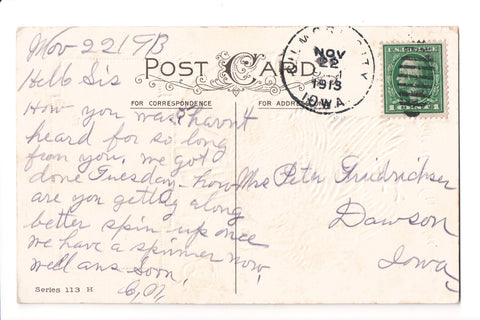 Nov 22 1913
POST CARD
GILMORE CITY
NOV
22
1913
IOWA
U.S. POSTAGE
1 CENT 1
FOR CORRESPONDENCE
FOR ADDRESS
Hello Sis
How you was? havnt
heard for so long
from you, we got
done Tuesday. how
are you getting along
better spin up once
we have a spinner now,
well ans soon,
Mrs Peter Friedrichsen
Dawson
Iowa
Series 113 H